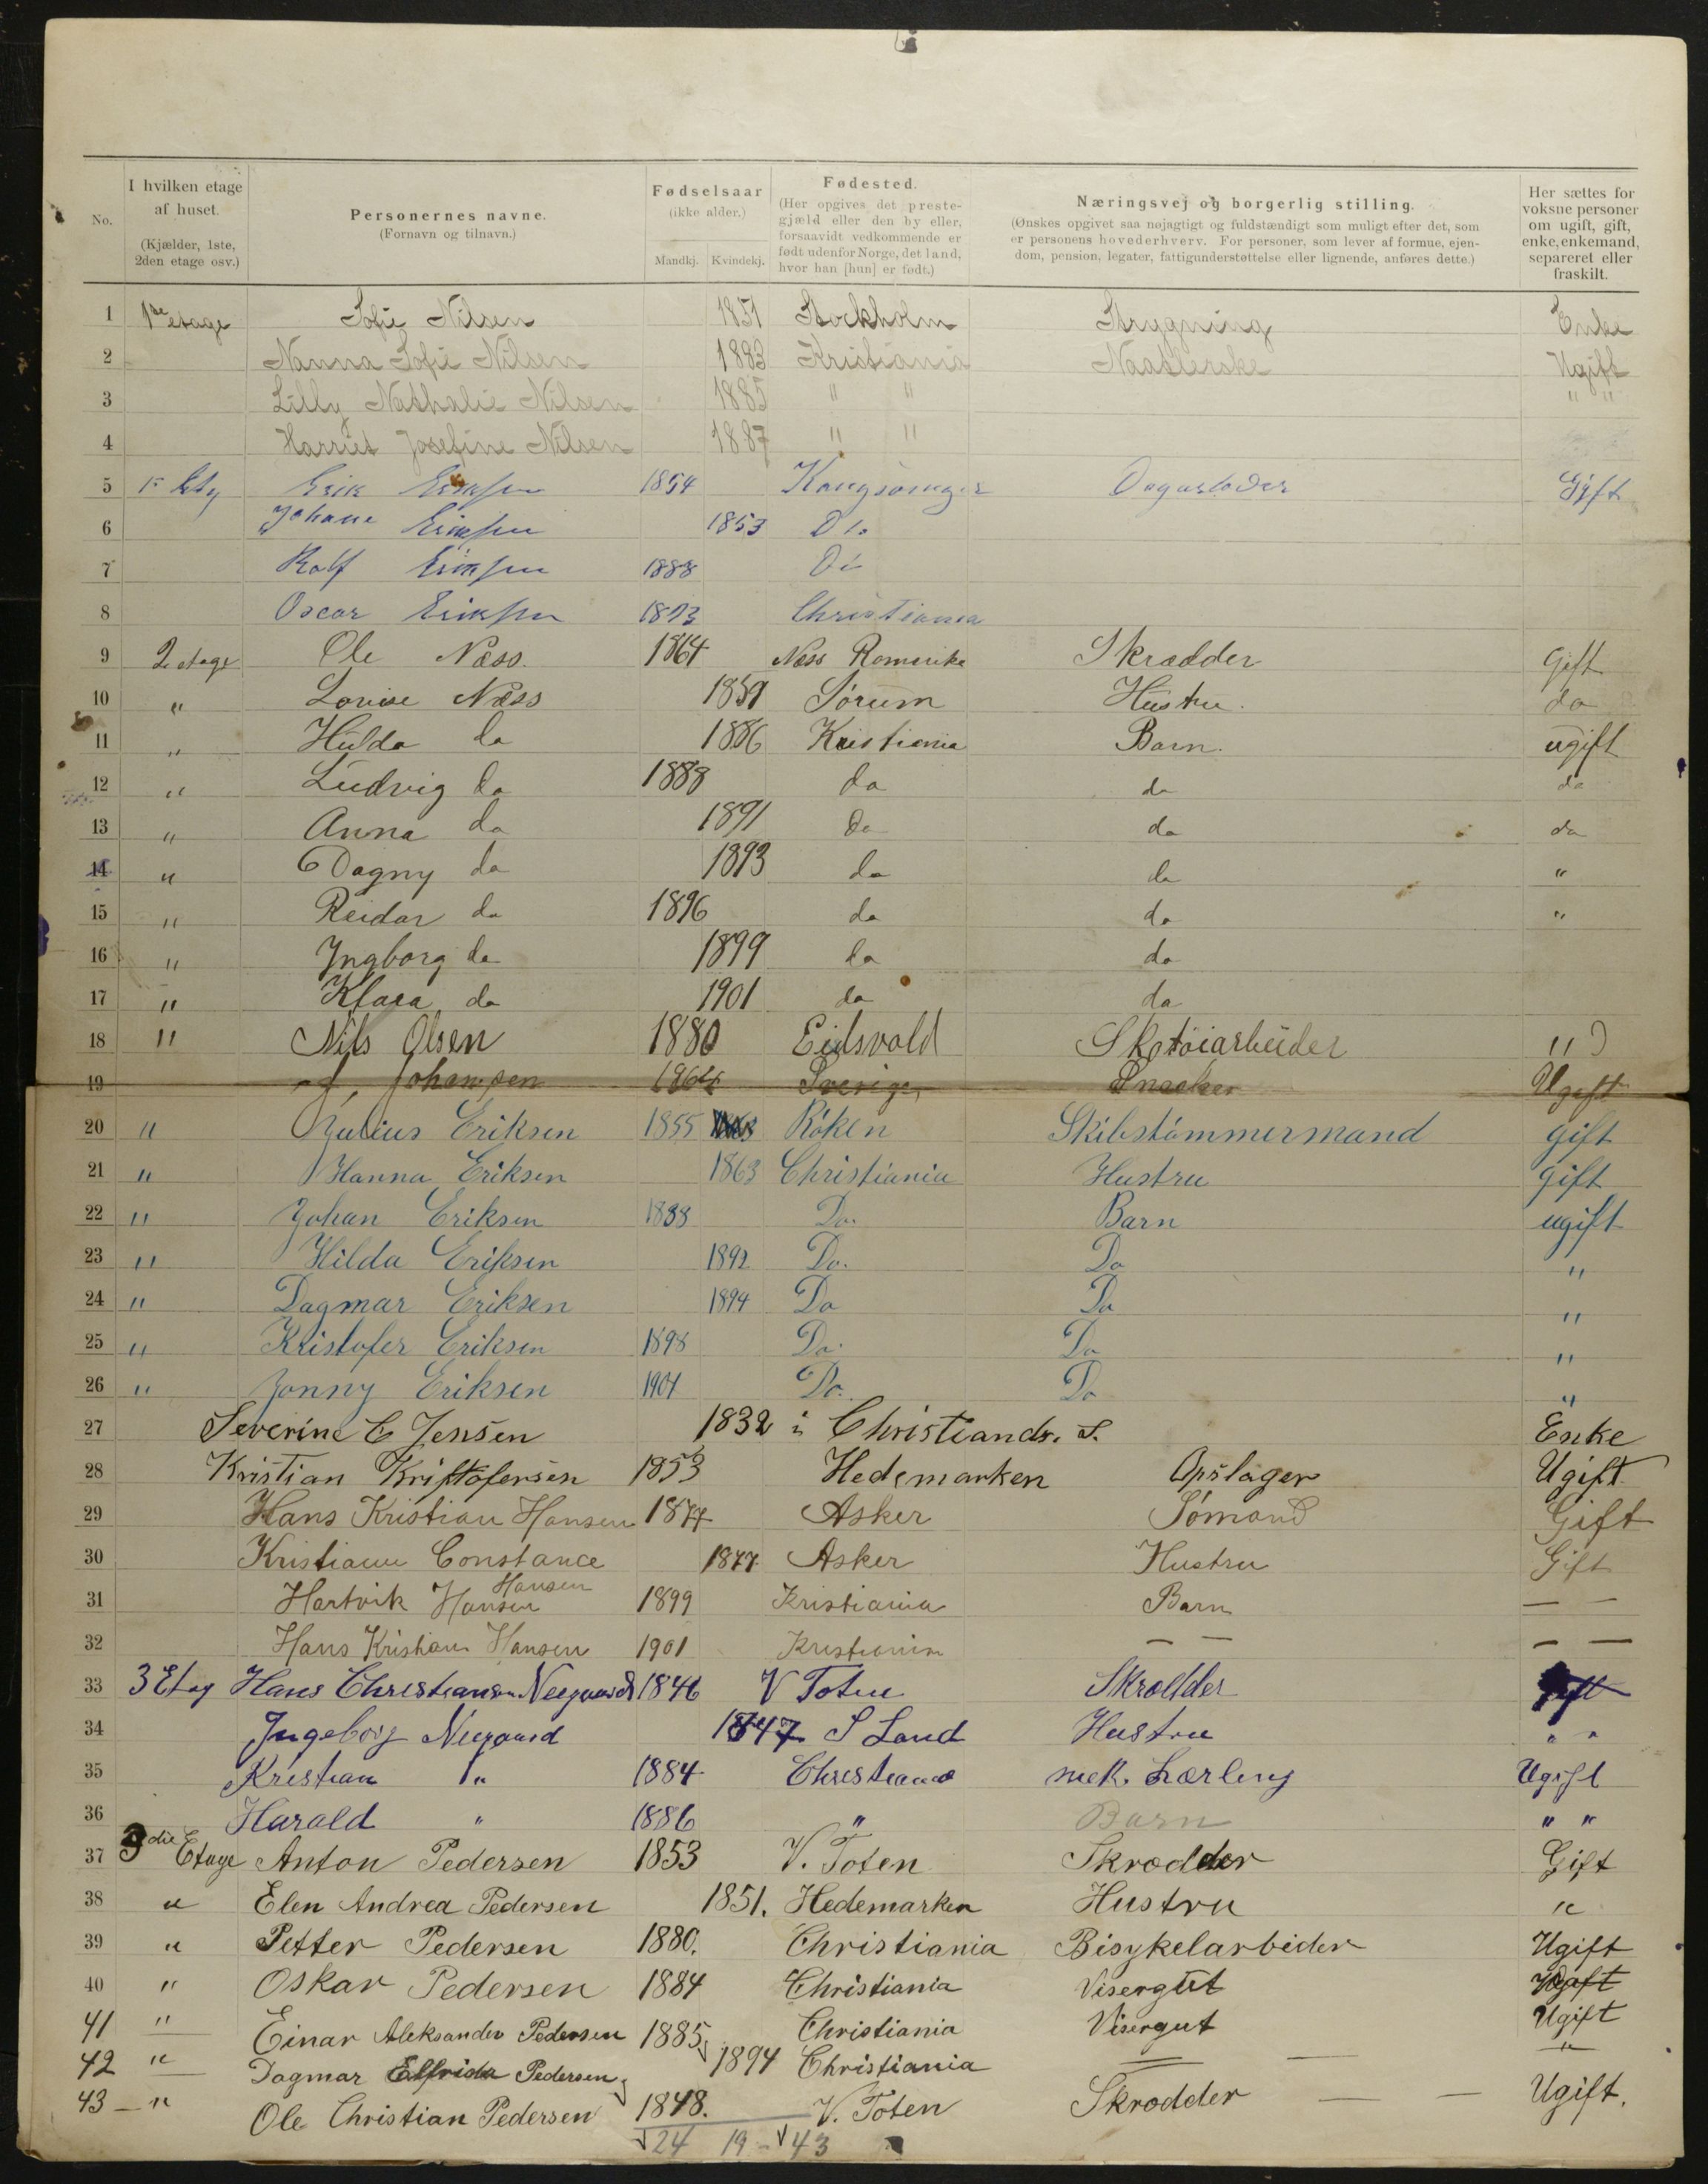 No.
I hvilken etage af huset.
(Kjælder, 1ste, 2den etage osv.)
Personernes navne.
(Fornavn og tilnavn.)
Fødselsaar
(ikke alder.)
Mandkj. Kvindekj.
Fødested.
(Her opgives det prestegjæld eller den by eller, forsaavidt vedkommende er født udenfor Norge, det land, hvor han [hun] er født.)
Næringsvej og borgerlig stilling.
(Ønskes opgivet saa nøjagtigt og fuldstændigt som muligt efter det, som er personens hovederhverv. For personer, som lever af formue, ejendom, pension, legater, fattigunderstøttelse eller lignende, anføres dette.)
Her sættes for voksne personer om ugift, gift, enke, enkemand, separeret eller fraskilt.
1 1ste etage Sofie Nilsen 1851 Stockholm Strygning Enke
2 Nanna Sofie Nilsen 1883 Kristiania Ugift
3 Lilly Nathalie Nilsen 1885 " " " "
4 Harriet Josefine Nilsen 1887 " "
5 Erik Eriksen 1854 Kongsvinger Gift
6 Johane Eriksen 1853 Do
7 Rolf Eriksen 1888 Do
8 Oscar Eriksen 1893 Christiania
9 2 etage Ole Næss. 1864 Næss Romerike Skrædder Gift
10 " Lovise Næss Sørum Hustru. do
11 " Hulda do 1886 Kristiania Barn. ugift
12 " Ludvig do 1888 do do do
13 " Anna do 1891 do do do
14 " Dagny do 1893 do do "
15 " Reidar do 1896 do do "
16 " Ingborg do 1899 do do
17 " Klara do 1901 do do
18 " Nils Olsen 1880 Eidsvold Skotøiarbeider "
19 Johansen 1864 Sverige Snecker Ugift
20 " Julius Eriksen 1855 Røken Skibstømmermand gift
21 " Hanna Eriksen 1863 Christiania Hustru gift
22 " Johan Eriksen 1888 Do. Barn ugift
23 " Hilda Eriksen 1892 Do. Do "
24 " Dagmar Eriksen 1894 Do Do "
25 " Kristofer Eriksen 1898 Do. Do "
26 " Jonny Eriksen 1904 Do. Do "
27 Severine C Jensen 1832 i Christiands. S. Enke
28 Kristian Kristofersen 1853 Hedemarken Opslager Ugift
29 Hans Kristian Hansen 1877 Asker Sømand Gift
30 Kristiane Constance Hansen 1877 Asker Hustru Gift
31 Hartvik Hansen 1899 Kristiania Barn — —
32 Hans Kristian Hansen 1901 Kristiania — — — —
33 3 Etag Hans Christiansen Neegaard 1846 V Toten Skrædder Gift
34 Ingeborg Neegaard 1847 S Land Hustru " "
35 Kristian " 1884 Christiania mek. Lærling Ugift
36 Harald " 1886 " Barn " "
37 3die Etage Anton Pedersen 1853 V. Toten Skrædder Gift
38 " Elen Andrea Pedersen 1851. Hedemarken Hustru "
39 " Petter Pedersen 1880. Christiania Bisykelarbeider Ugift
40 " Oskar Pedersen 1884 Christiania Visergut Ugift
41 " Einar Aleksander Pedersen 1885 Christiania Visergut Ugift
42 " Dagmar Elfrida Pedersen 1894 Christiania — — "
43 — " Ole Christian Pedersen 1848. V. Toten Skrædder — — Ugift.
24 19 - 43